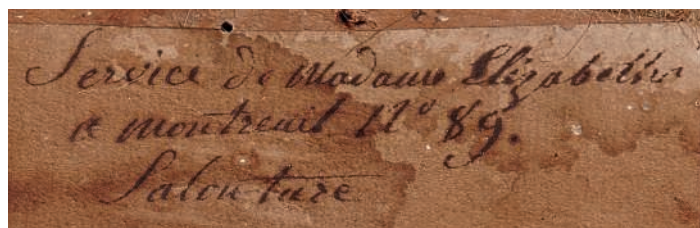 Service de Madame Elizabeth
a montreuil N° 89.
Salon turc